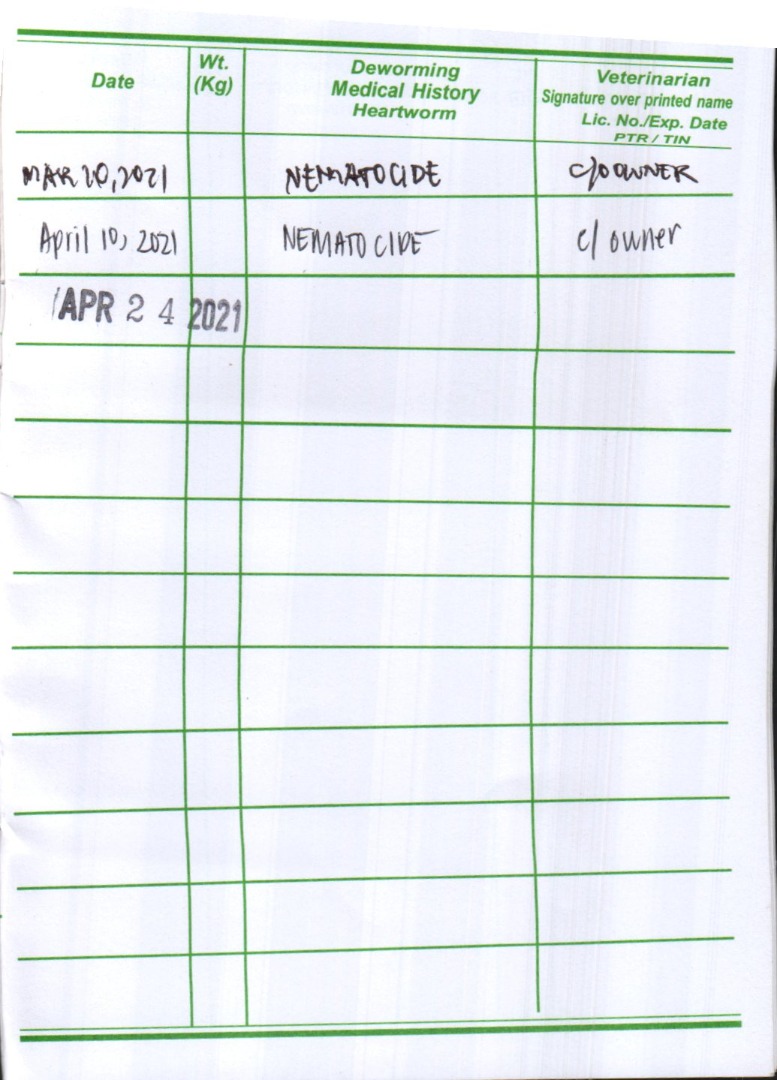 Date
Wt.
(Kg)
Deworming
Medical History
Heartworm
Veterinarian
Signature over printed name
Lic. No./Exp. Date
PTR / TIN
MAR 20, 2021 NEMATOCIDE c/o OWNER
April 10, 2021 NEMATOCIDE c/ owner
APR 24 2021